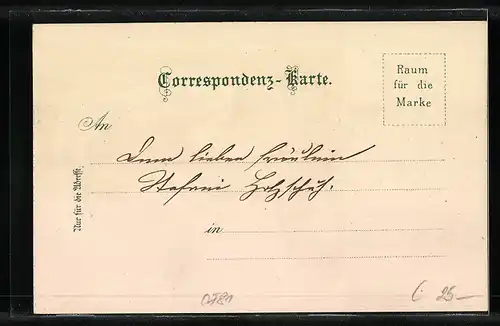 Correspondenz-Karte.
Raum
für die
Marke
An
lieben Fräulein
Stefani Holzschuh.
in
Nur für die Adresse.
0781
25-